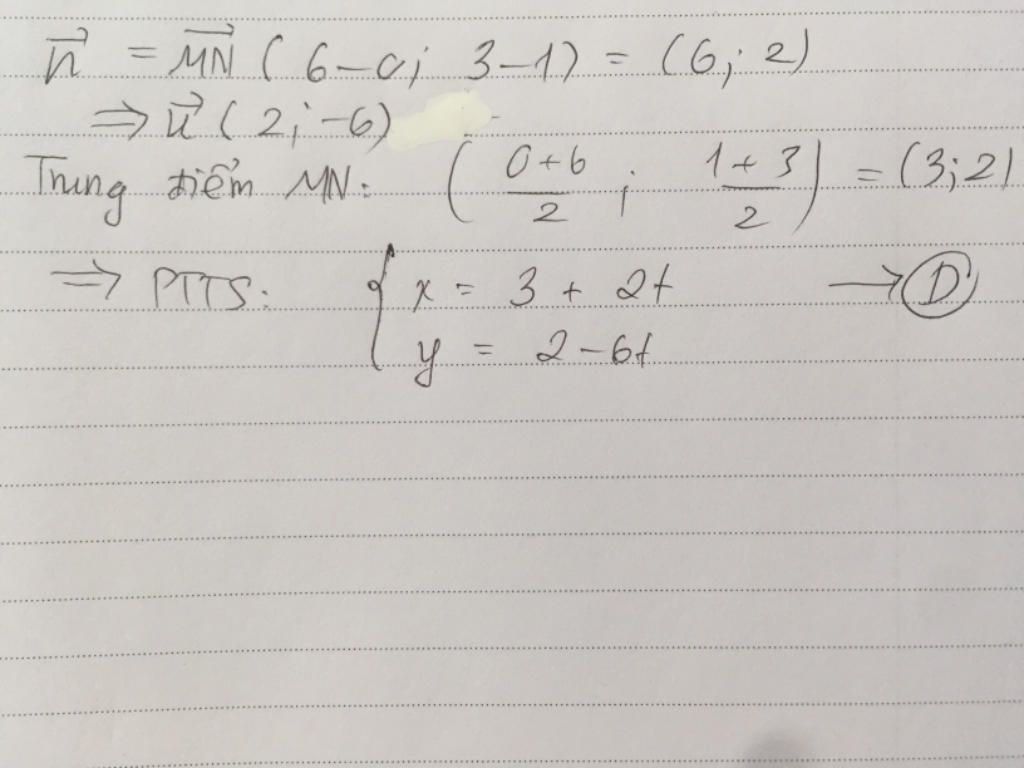 n⃗ = MN⃗ ( 6-0; 3-1) = (6; 2)
⇒ u⃗ ( 2; -6)
Trung điểm MN: ( (0+6)/2 ; (1+3)/2 ) = (3; 2)
⇒ PTTS: { x = 3 + 2t → Ⓓ
y = 2 - 6t